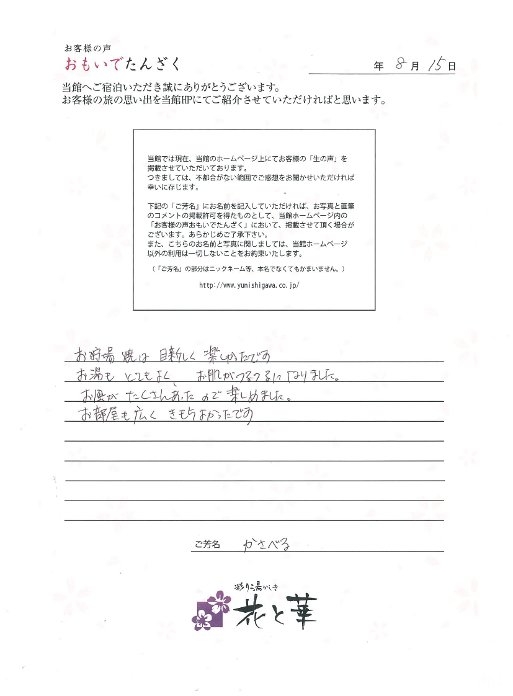 お客様の声
おもいでたんざく
年 8月 15日
当館へご宿泊いただき誠にありがとうございます。
お客様の旅の思い出を当館HPにてご紹介させていただければと思います。
当館では現在、当館のホームページ上にてお客様の「生の声」を
掲載させていただいております。
つきましては、不都合がない範囲でご感想をお聞かせいただければ
幸いに存じます。
下記の「ご芳名」にお名前を記入していただければ、お写真と直筆
のコメントの掲載許可を得たものとして、当館ホームページ内の
「お客様の声おもいでたんざく」において、掲載させて頂く場合が
ございます。あらかじめご了承下さい。
また、こちらのお名前と写真に関しましては、当館ホームページ
以外の利用は一切しないことをお約束いたします。
(「ご芳名」の部分はニックネーム等、本名でなくてもかまいません。)
http://www.yunishigawa.co.jp/
お狩場焼は 目新しく 楽しかったです
お湯も とてもよく、 お肌がつるつるになりました。
お風呂が たくさんあったので 楽しめました。
お部屋も広く きもちよかったです
ご芳名 かさべる
彩り湯かしき
花と華